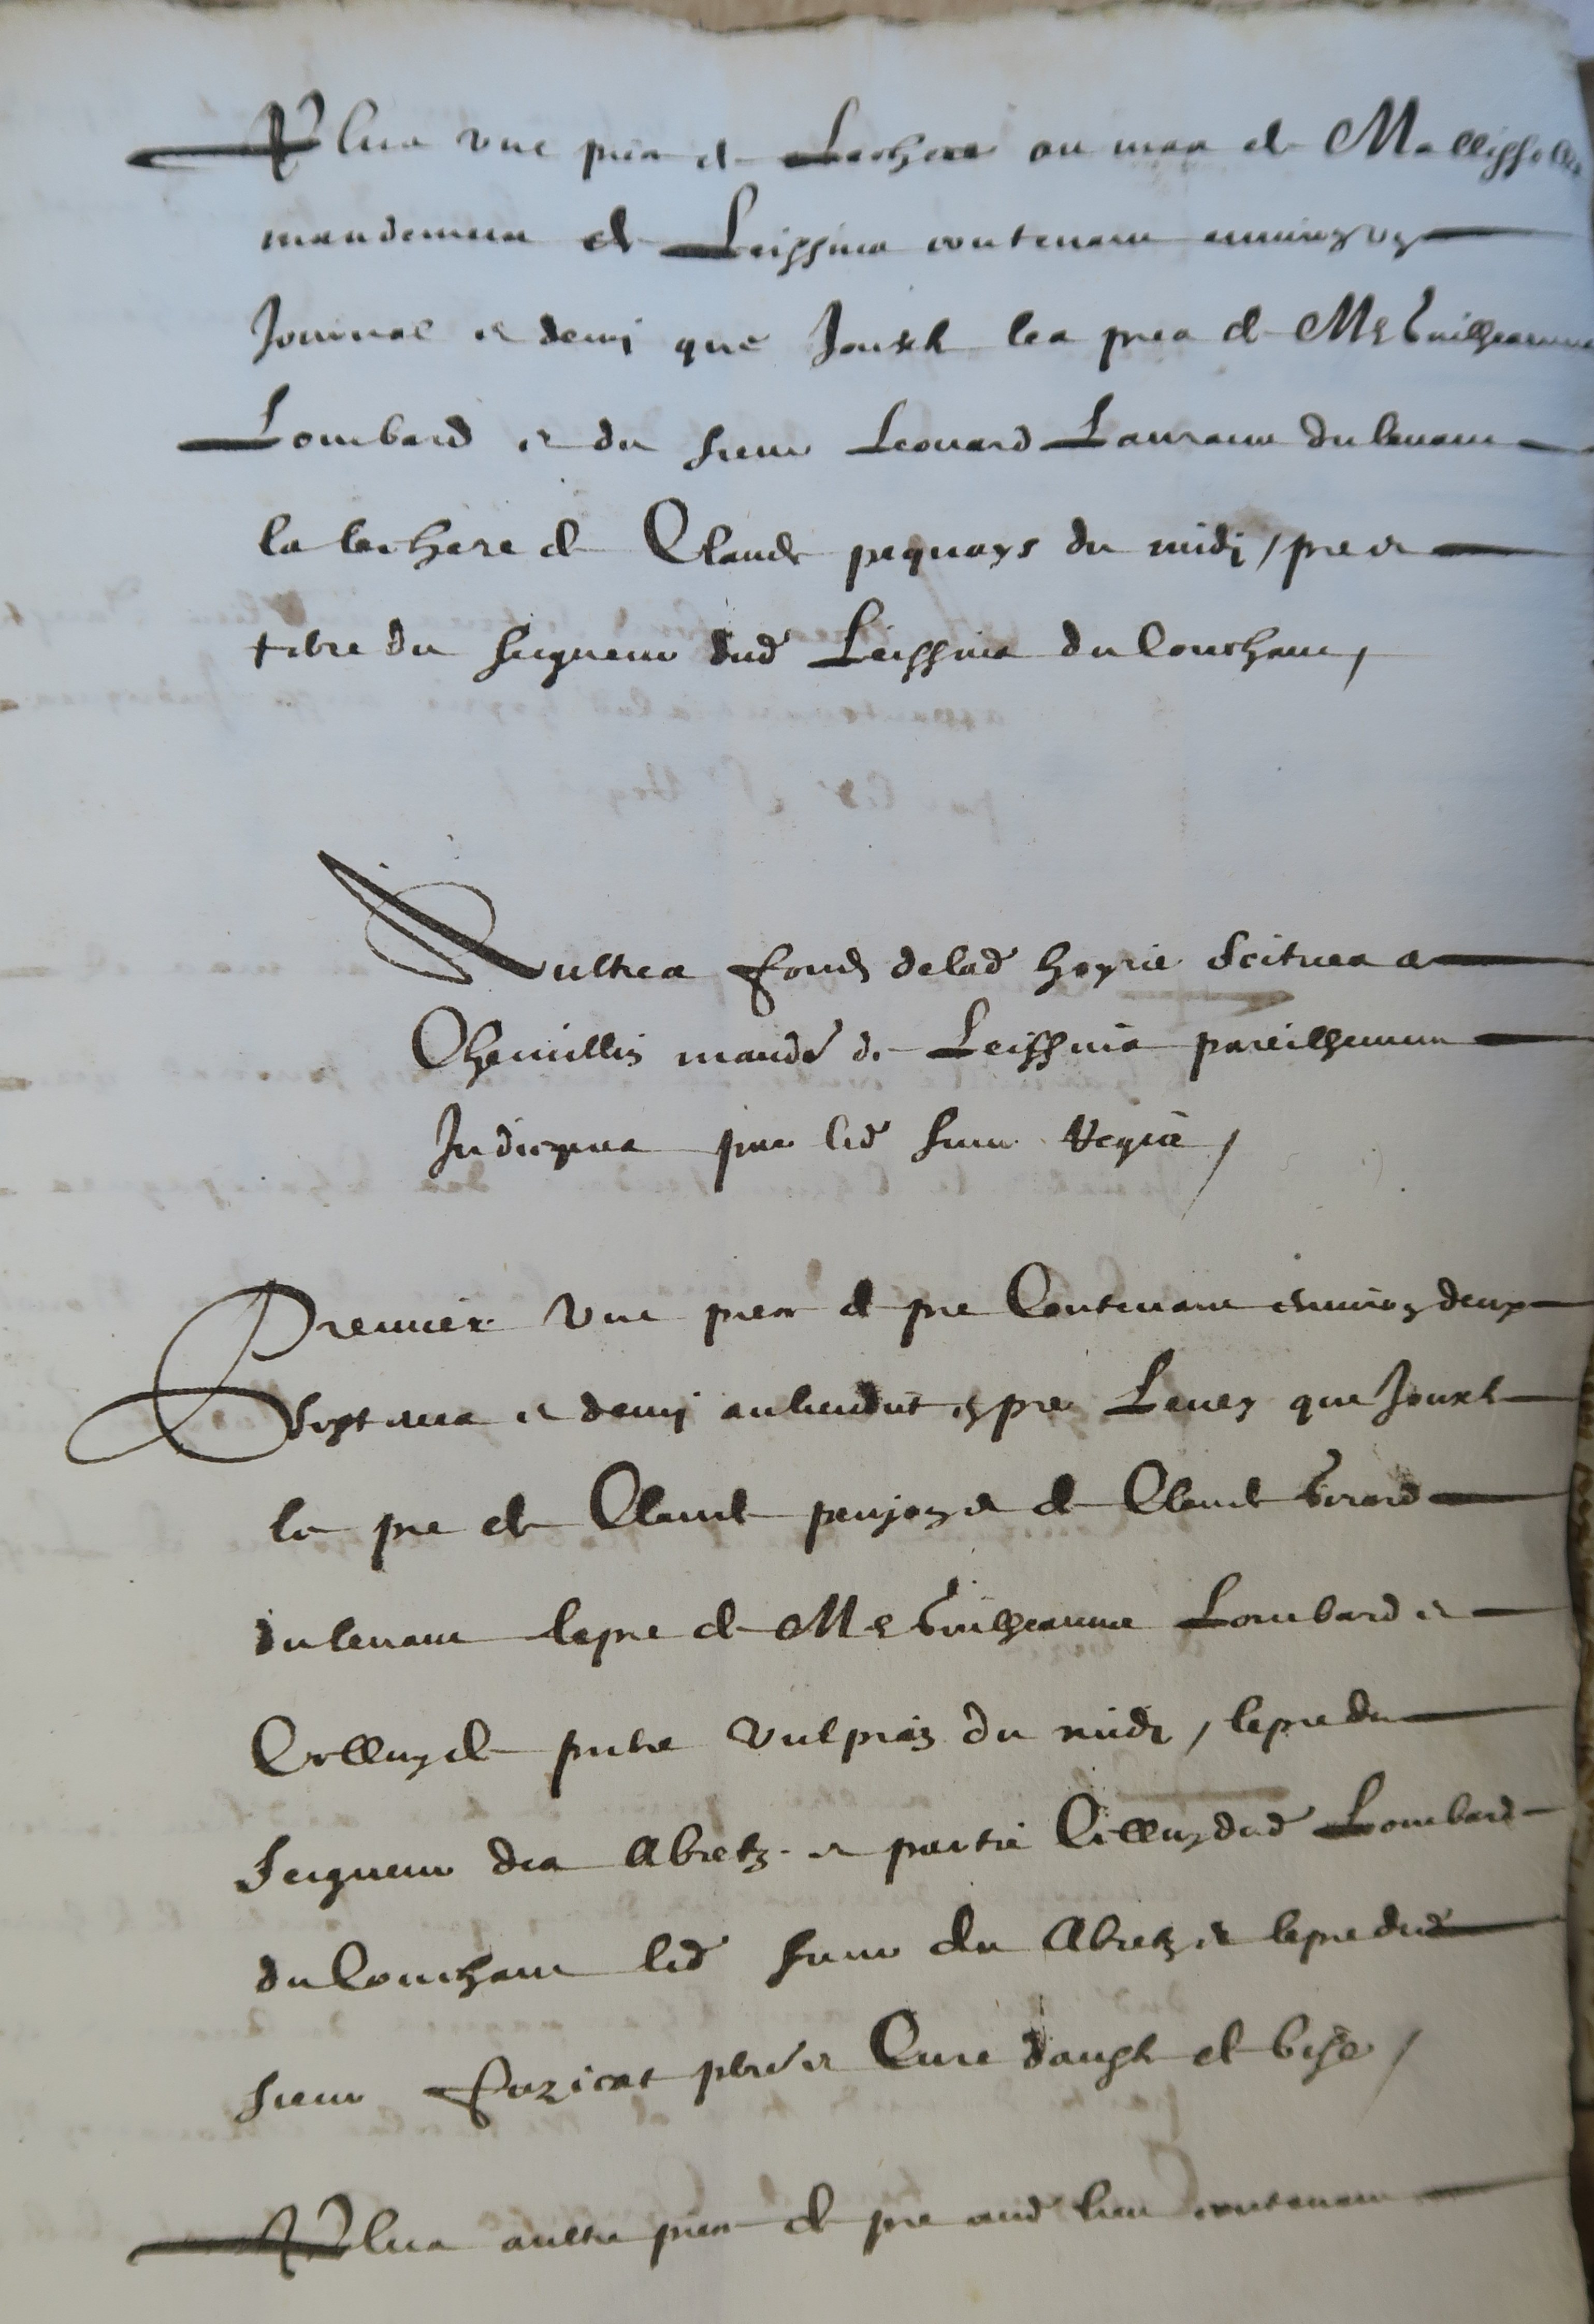 Plus une piece de Lechere au mas de Mallissolles
mandement de Leissins contenant environ ung
Journal et demi que Jouxte les pres de Me Guilheaume
Lombard et du sieur Leonard Laurans du levant
la lechere de Claude pequays du midi / pre et
terre du seigneur dud Leissins du Couchant /
Aultres fonds de lad hoyrie scitues a
Chemillin mandt de Leissins pareilhement
Indicques par led sieur Veyrat /
Premier une piece de pre Contenant environ deux
seytives et demi au lieu dict en pre Leney que Jouxte
le pre de Claude penjon et de Claude Girard
du levant le pre de Me Guilheaume Lombard et
de du midi / le pre du
Seigneur des Abretz et partie dud Lombard
du Couchant led sieur des Abretz et le pre dud
sieur pbre et Cure de bise /
Plus aultre piece de pre aud lieu contenant